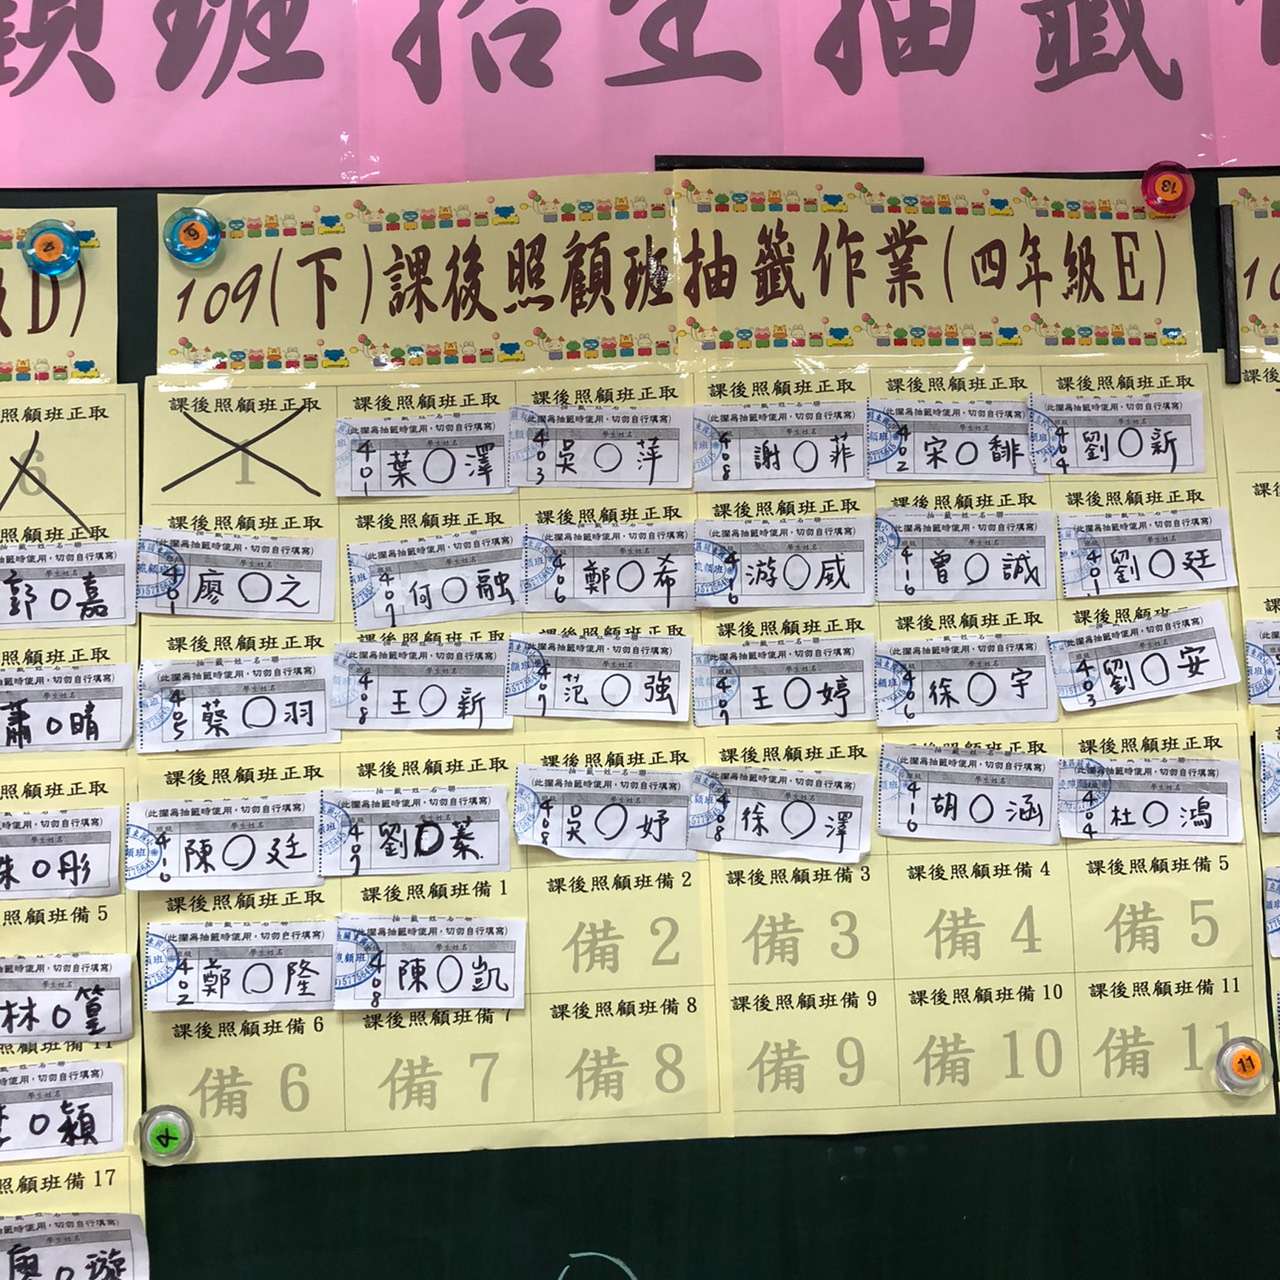 顧班招生抽籤
109(下)課後照顧班抽籤作業(四年級E)
級D)
課後照顧班正取 課後照顧班正取 課後照顧班正取 課後照顧班正取 課後照顧班正取 課後照顧班正取
1
(此欄為抽籤時使用,切勿自行填寫)
學生姓名
401 葉〇澤
403 吳〇萍
408 謝〇菲
402 宋〇馡
404 劉〇新
課後照顧班正取 課後照顧班正取 課後照顧班正取 課後照顧班正取 課後照顧班正取 課後照顧班正取
401 廖〇之
407 何〇融
406 鄭〇希
416 游〇威
416 曾〇誠
401 劉〇廷
課後照顧班正取 課後照顧班正取 課後照顧班正取 課後照顧班正取 課後照顧班正取
405 蔡〇羽
408 王〇新
407 范〇強
407 王〇婷
406 徐〇宇
403 劉〇安
課後照顧班正取 課後照顧班正取 課後照顧班正取 課後照顧班正取 課後照顧班正取 課後照顧班正取
416 陳〇廷
407 劉〇蓁
408 吳〇妤
408 徐〇澤
416 胡〇涵
404 杜〇鴻
課後照顧班正取 課後照顧班備1 課後照顧班備2 課後照顧班備3 課後照顧班備4 課後照顧班備5
402 鄭〇隆
408 陳〇凱
備2 備3 備4 備5
課後照顧班備6 課後照顧班備7 課後照顧班備8 課後照顧班備9 課後照顧班備10 課後照顧班備11
備6 備7 備8 備9 備10 備11
照顧班正取
6
照顧班正取
郭〇嘉
照顧班正取
蕭〇晴
照顧班正取
〇彤
照顧班備5
林〇篁
照顧班備11
〇穎
照顧班備17
〇璇